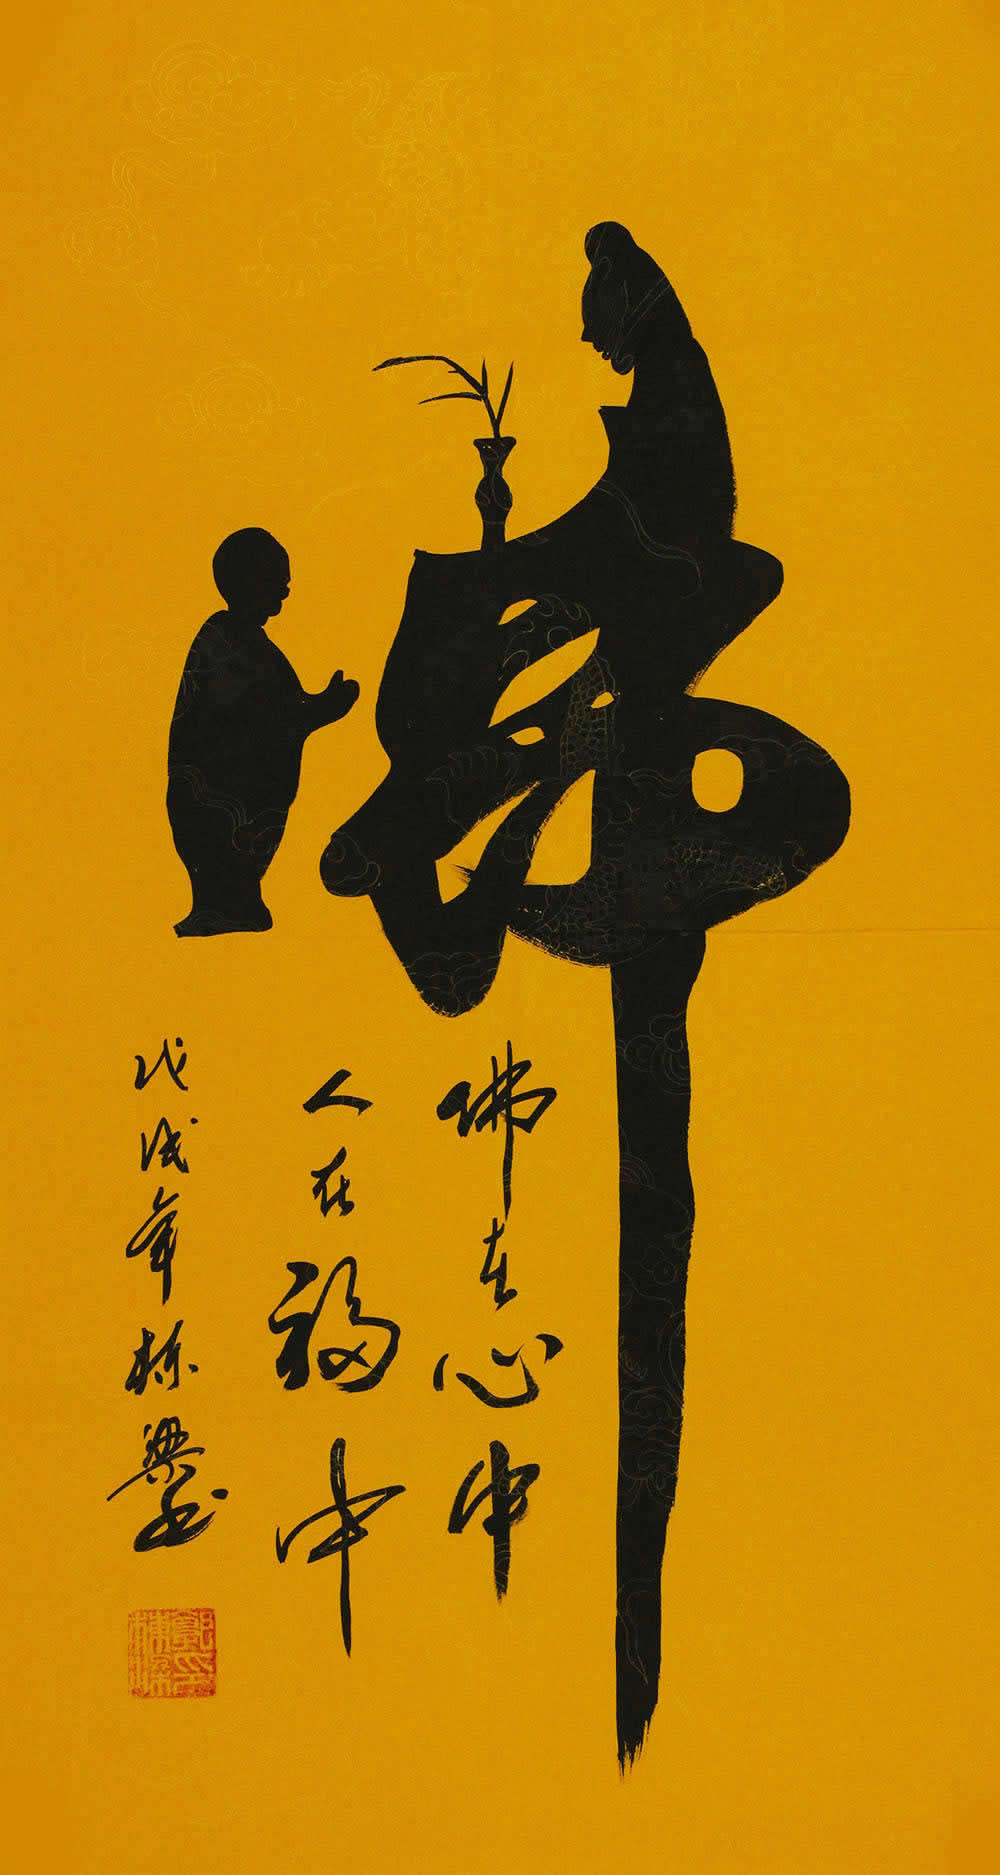 佛
佛在心中
人在福中
戊戌年栋梁书